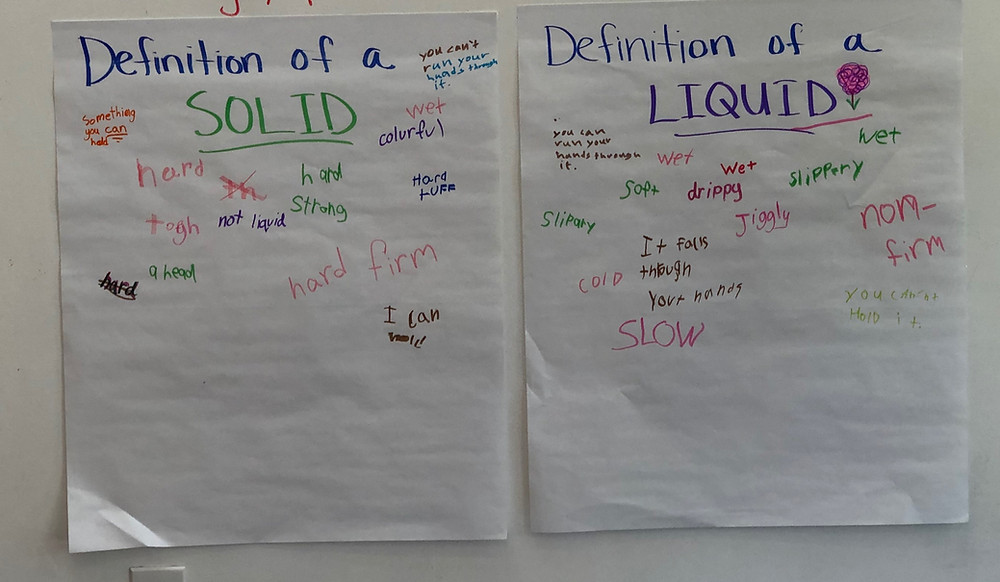 Definition of a
SOLID
you can't
run your
hands through
it.
Something
you can
hold
wet
colurful
hard
hard
Hard
tUFF
Strong
togh
not liquid
hard
a head
hard firm
I can
Definition of a
LIQUID
you can
run your
hands through
it.
wet
wet
wet
Soft
drippy
slippery
Slipary
Jiggly
non-
firm
It falls
though
Your hands
COLD
SLOW
Hold it.